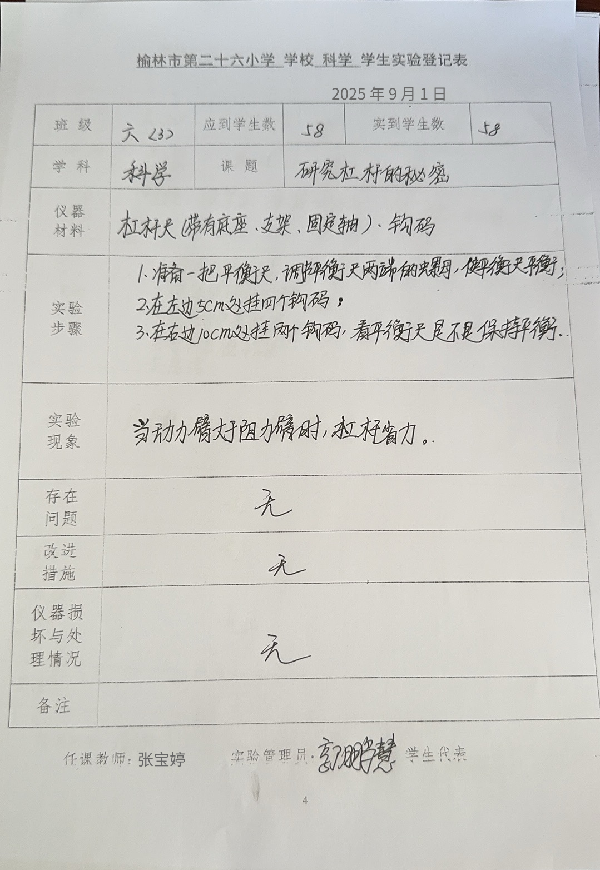 榆林市第二十六小学 学校 科学 学生实验登记表
2025年9月1日
班 级 六(3) 应到学生数 58 实到学生数 58
学 科 科学 课 题 研究杠杆的秘密
仪器材料 杠杆尺(带有底座、支架、固定轴)、钩码
实验步骤 1.准备一把平衡尺,调节平衡尺两端的螺母,使平衡尺平衡;
2.在左边5cm处挂四个钩码;
3.在右边10cm处挂两个钩码,看平衡尺是不是保持平衡.
实验现象 当动力臂大于阻力臂时,杠杆省力。
存在问题 无
改进措施 无
仪器损坏与处理情况 无
备注
任课教师:张宝婷 实验管理员: 学生代表
4